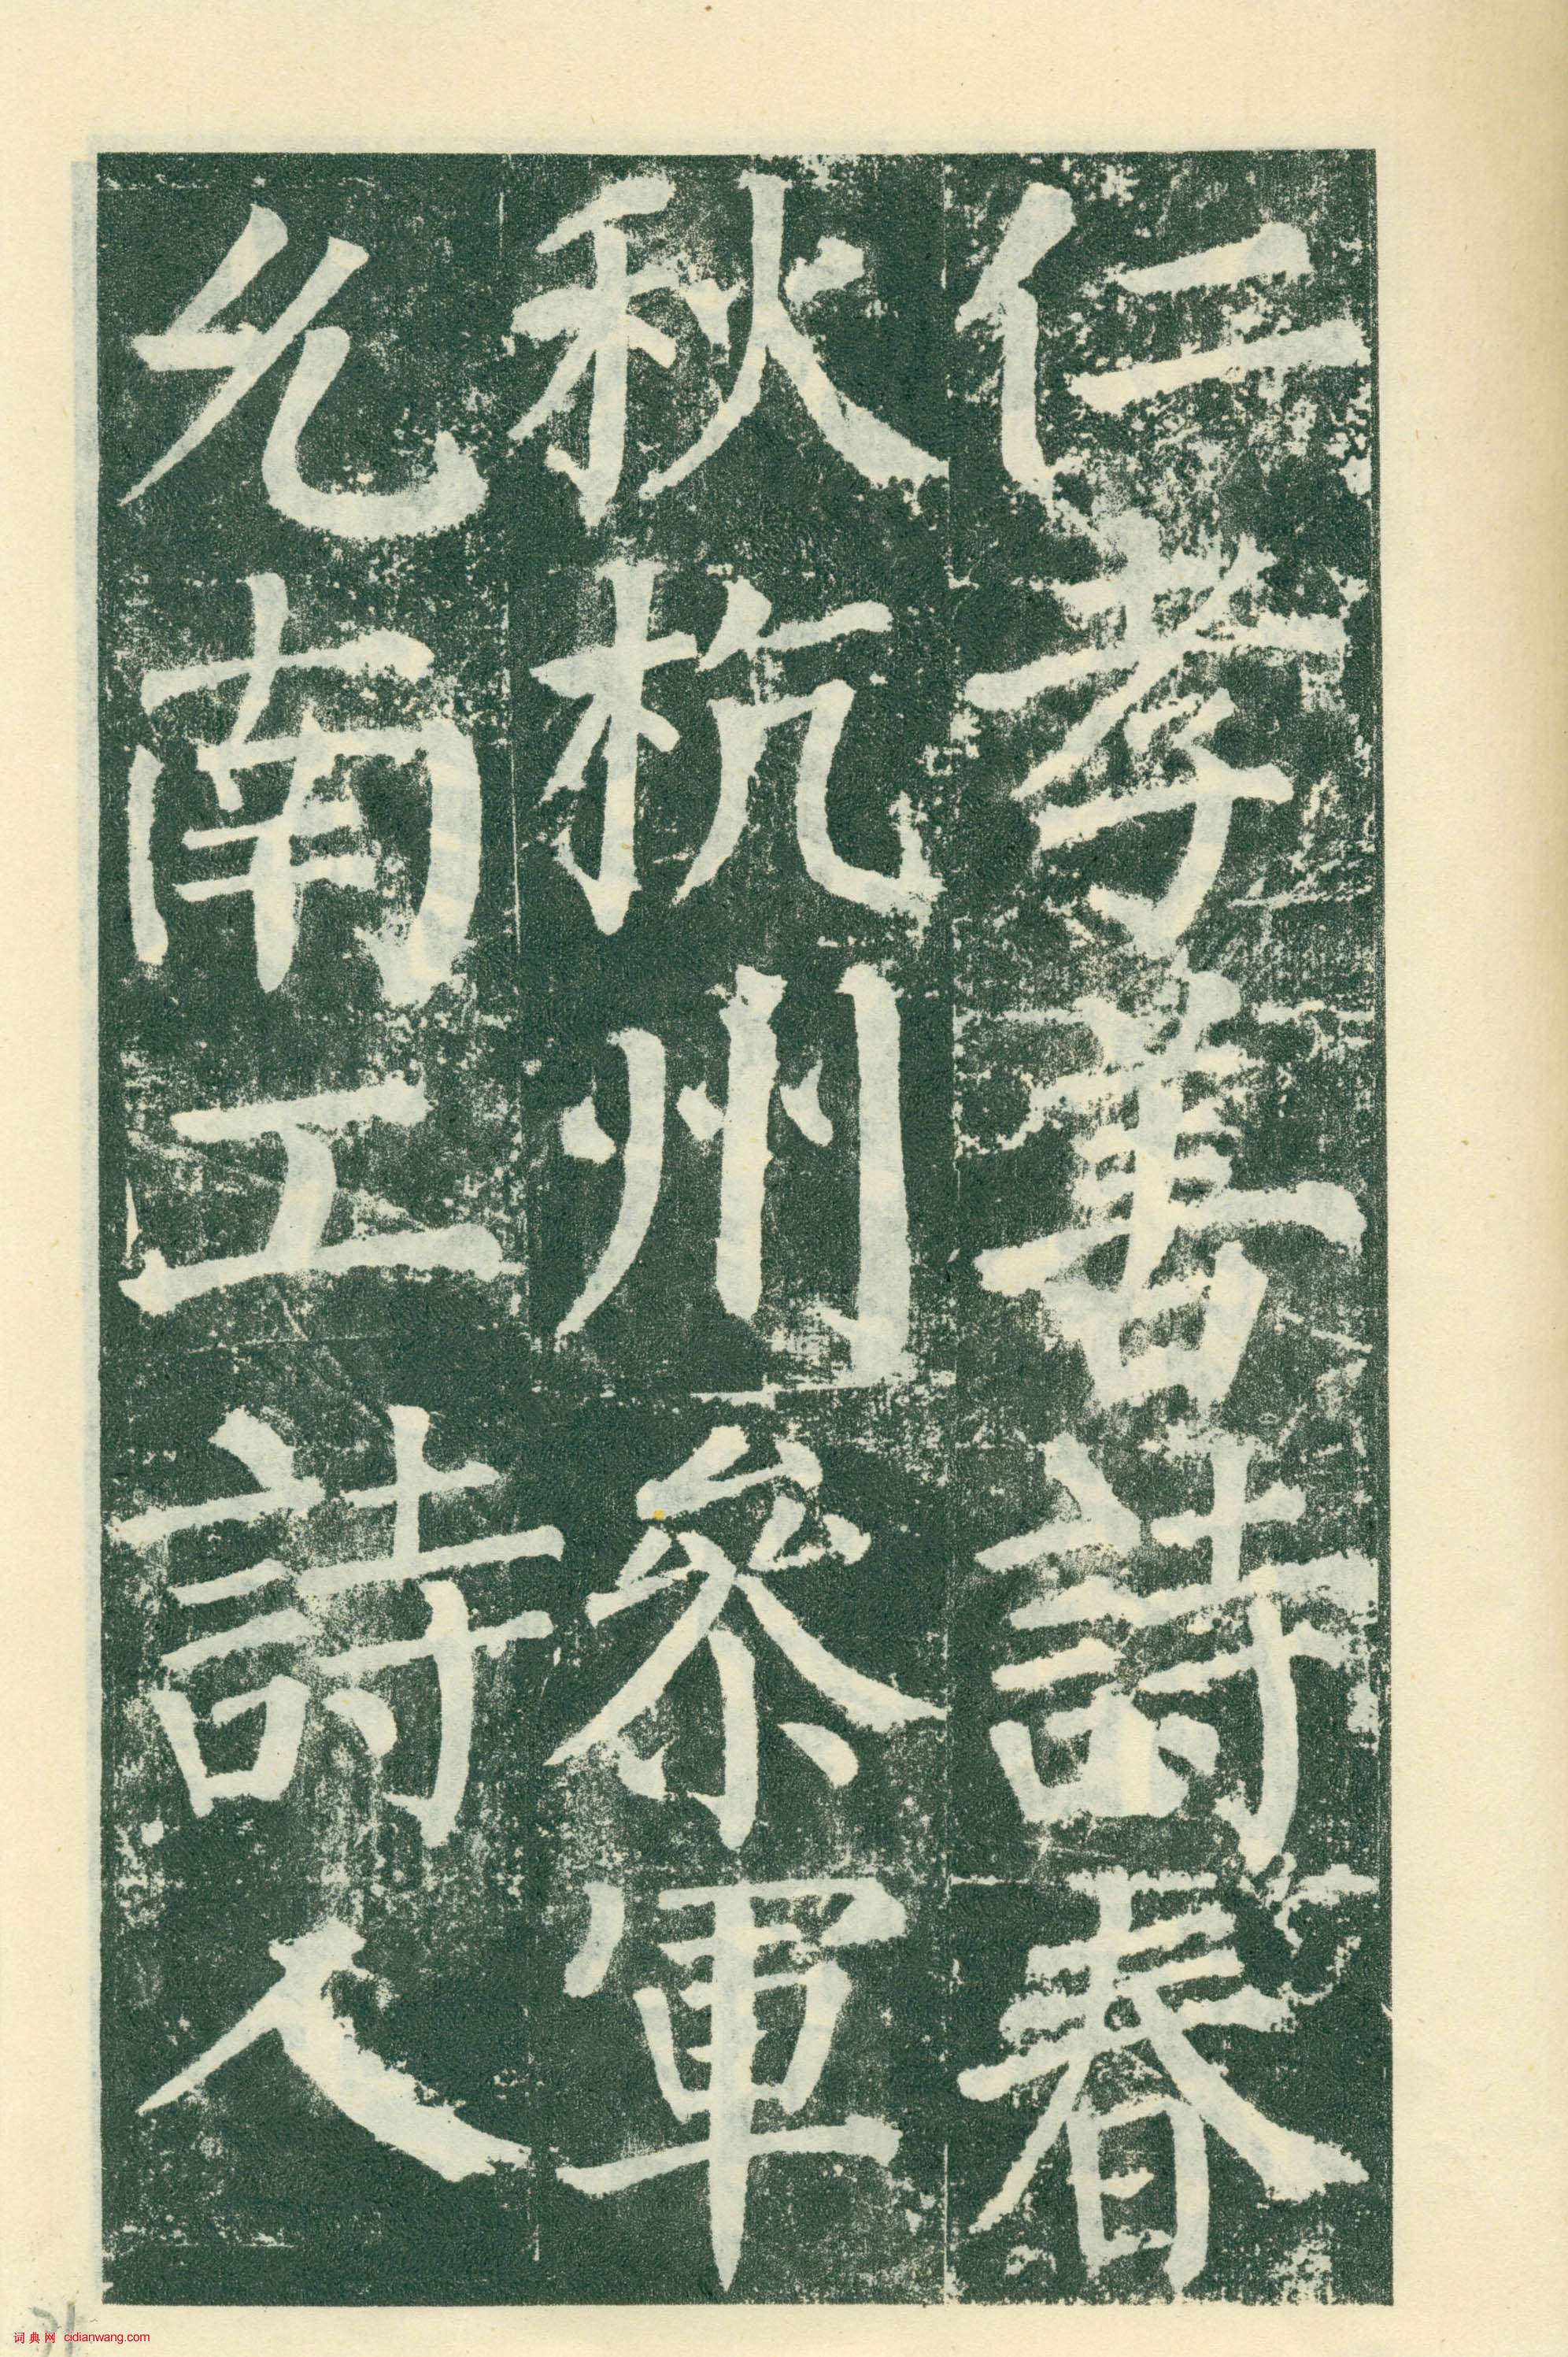 仁孝善詩春
秋杭州參軍
允南工詩人
词典网 cidianwang.com